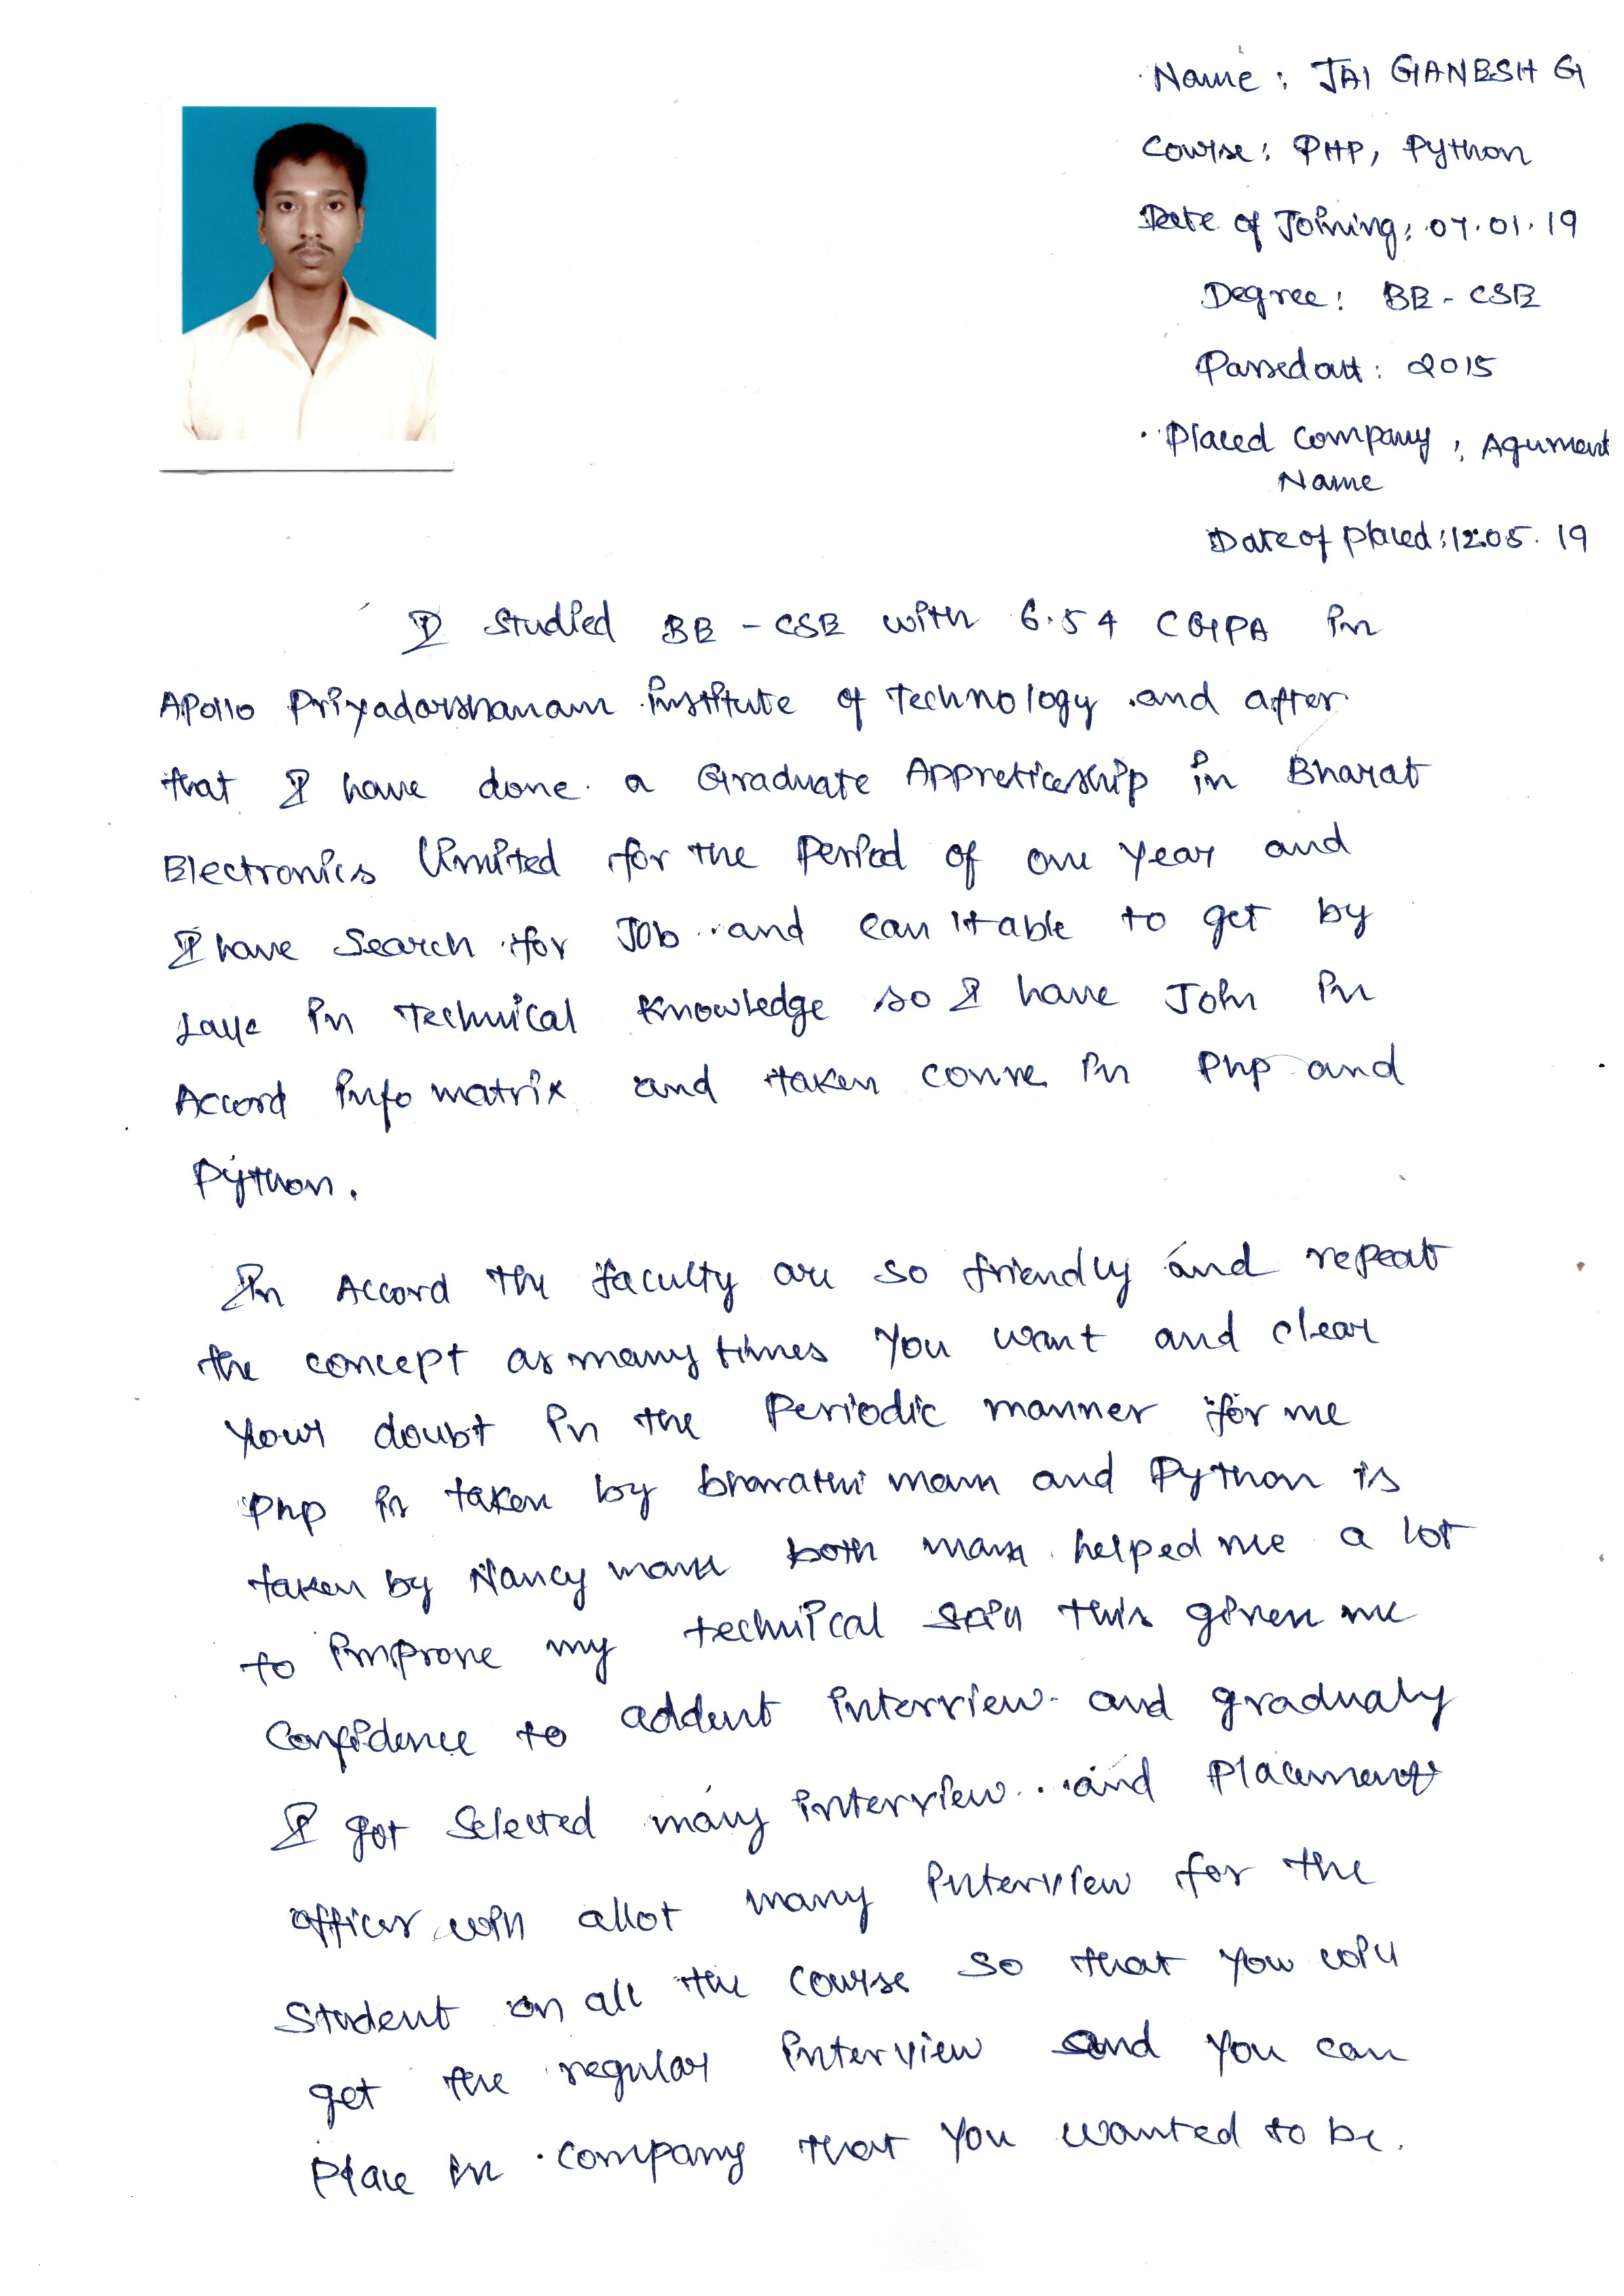 Name : JAI GANESH G
Course : PHP, Python
Date of Joining : 07.01.19
Degree : BE - CSE
Passed out : 2015
Placed Company : Agument
Name
Date of placed : 12.05.19
I studied BE - CSE with 6.54 CGPA in
Apollo Priyadarshanam institute of Technology and after
that I have done a Graduate Appreticeship in Bharat
Electronics Limited for the Period of one year and
I have Search for Job and can it able to get by
in Technical Knowledge so I have Join in
Accord info matrix and taken in Php and
Python.
In Accord the faculty are so friendly and repeat
the concept as many times you want and clear
your doubt in the Periodic manner for me
Php is taken by bharathi mam and Python is
taken by Nancy mam both mam helped me a lot
to improve my technical this given me
Confidence to addent interview and gradualy
I got Selected many interview and Placement
officer will allot many interview for the
Student on all the course so that you will
get the regular interview and you can
Place in company that you wanted to be.